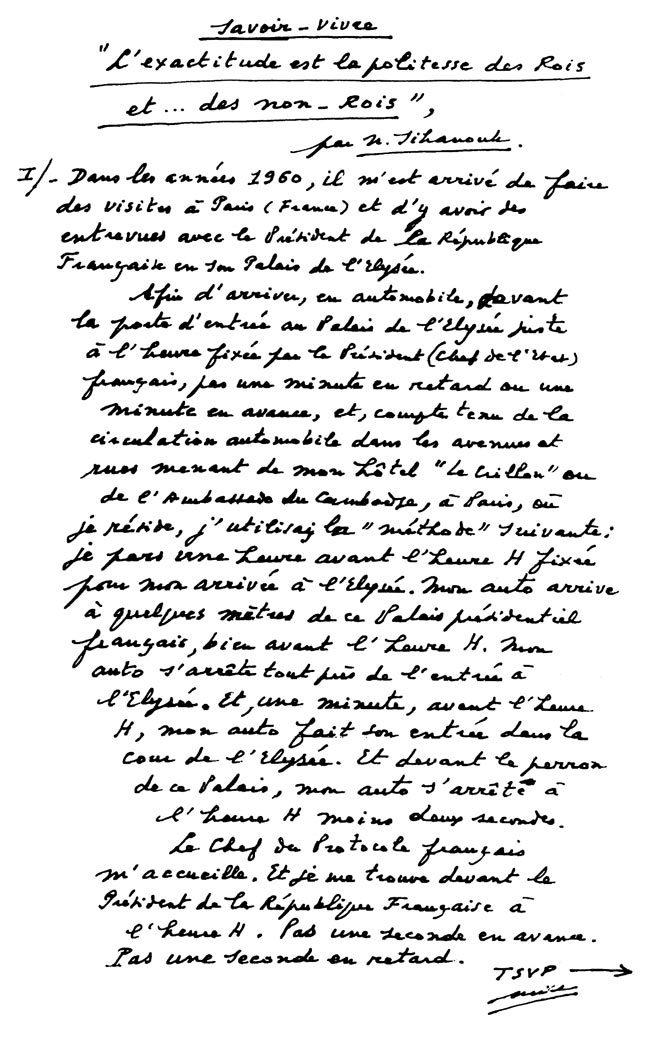 Savoir-Vivre
"L'exactitude est la politesse des Rois
et... des non-Rois",
par N. Sihanouk.
I/- Dans les années 1960, il m'est arrivé de faire
des visites à Paris (France) et d'y avoir des
entrevues avec le Président de la République
Française en son Palais de l'Elysée.
Afin d'arriver, en automobile, devant
la porte d'entrée au Palais de l'Elysée juste
à l'heure fixée par le Président (Chef de l'Etat)
français, pas une minute en retard ou une
minute en avance, et, compte tenu de la
circulation automobile dans les avenues et
rues menant de mon hôtel "Le Crillon" ou
de l'Ambassade du Cambodge, à Paris, où
je réside, j'utilisai la "méthode" suivante :
je pars une heure avant l'heure H fixée
pour mon arrivée à l'Elysée. Mon auto arrive
à quelques mètres de ce Palais présidentiel
français, bien avant l'heure H. Mon
auto s'arrête tout près de l'entrée à
l'Elysée. Et, une minute, avant l'heure
H, mon auto fait son entrée dans la
cour de l'Elysée. Et devant le perron
de ce Palais, mon auto s'arrête à
l'heure H moins deux secondes.
Le Chef du Protocole français
m'accueille. Et je me trouve devant le
Président de la République Française à
l'heure H. Pas une seconde en avance.
Pas une seconde en retard.
TSVP →